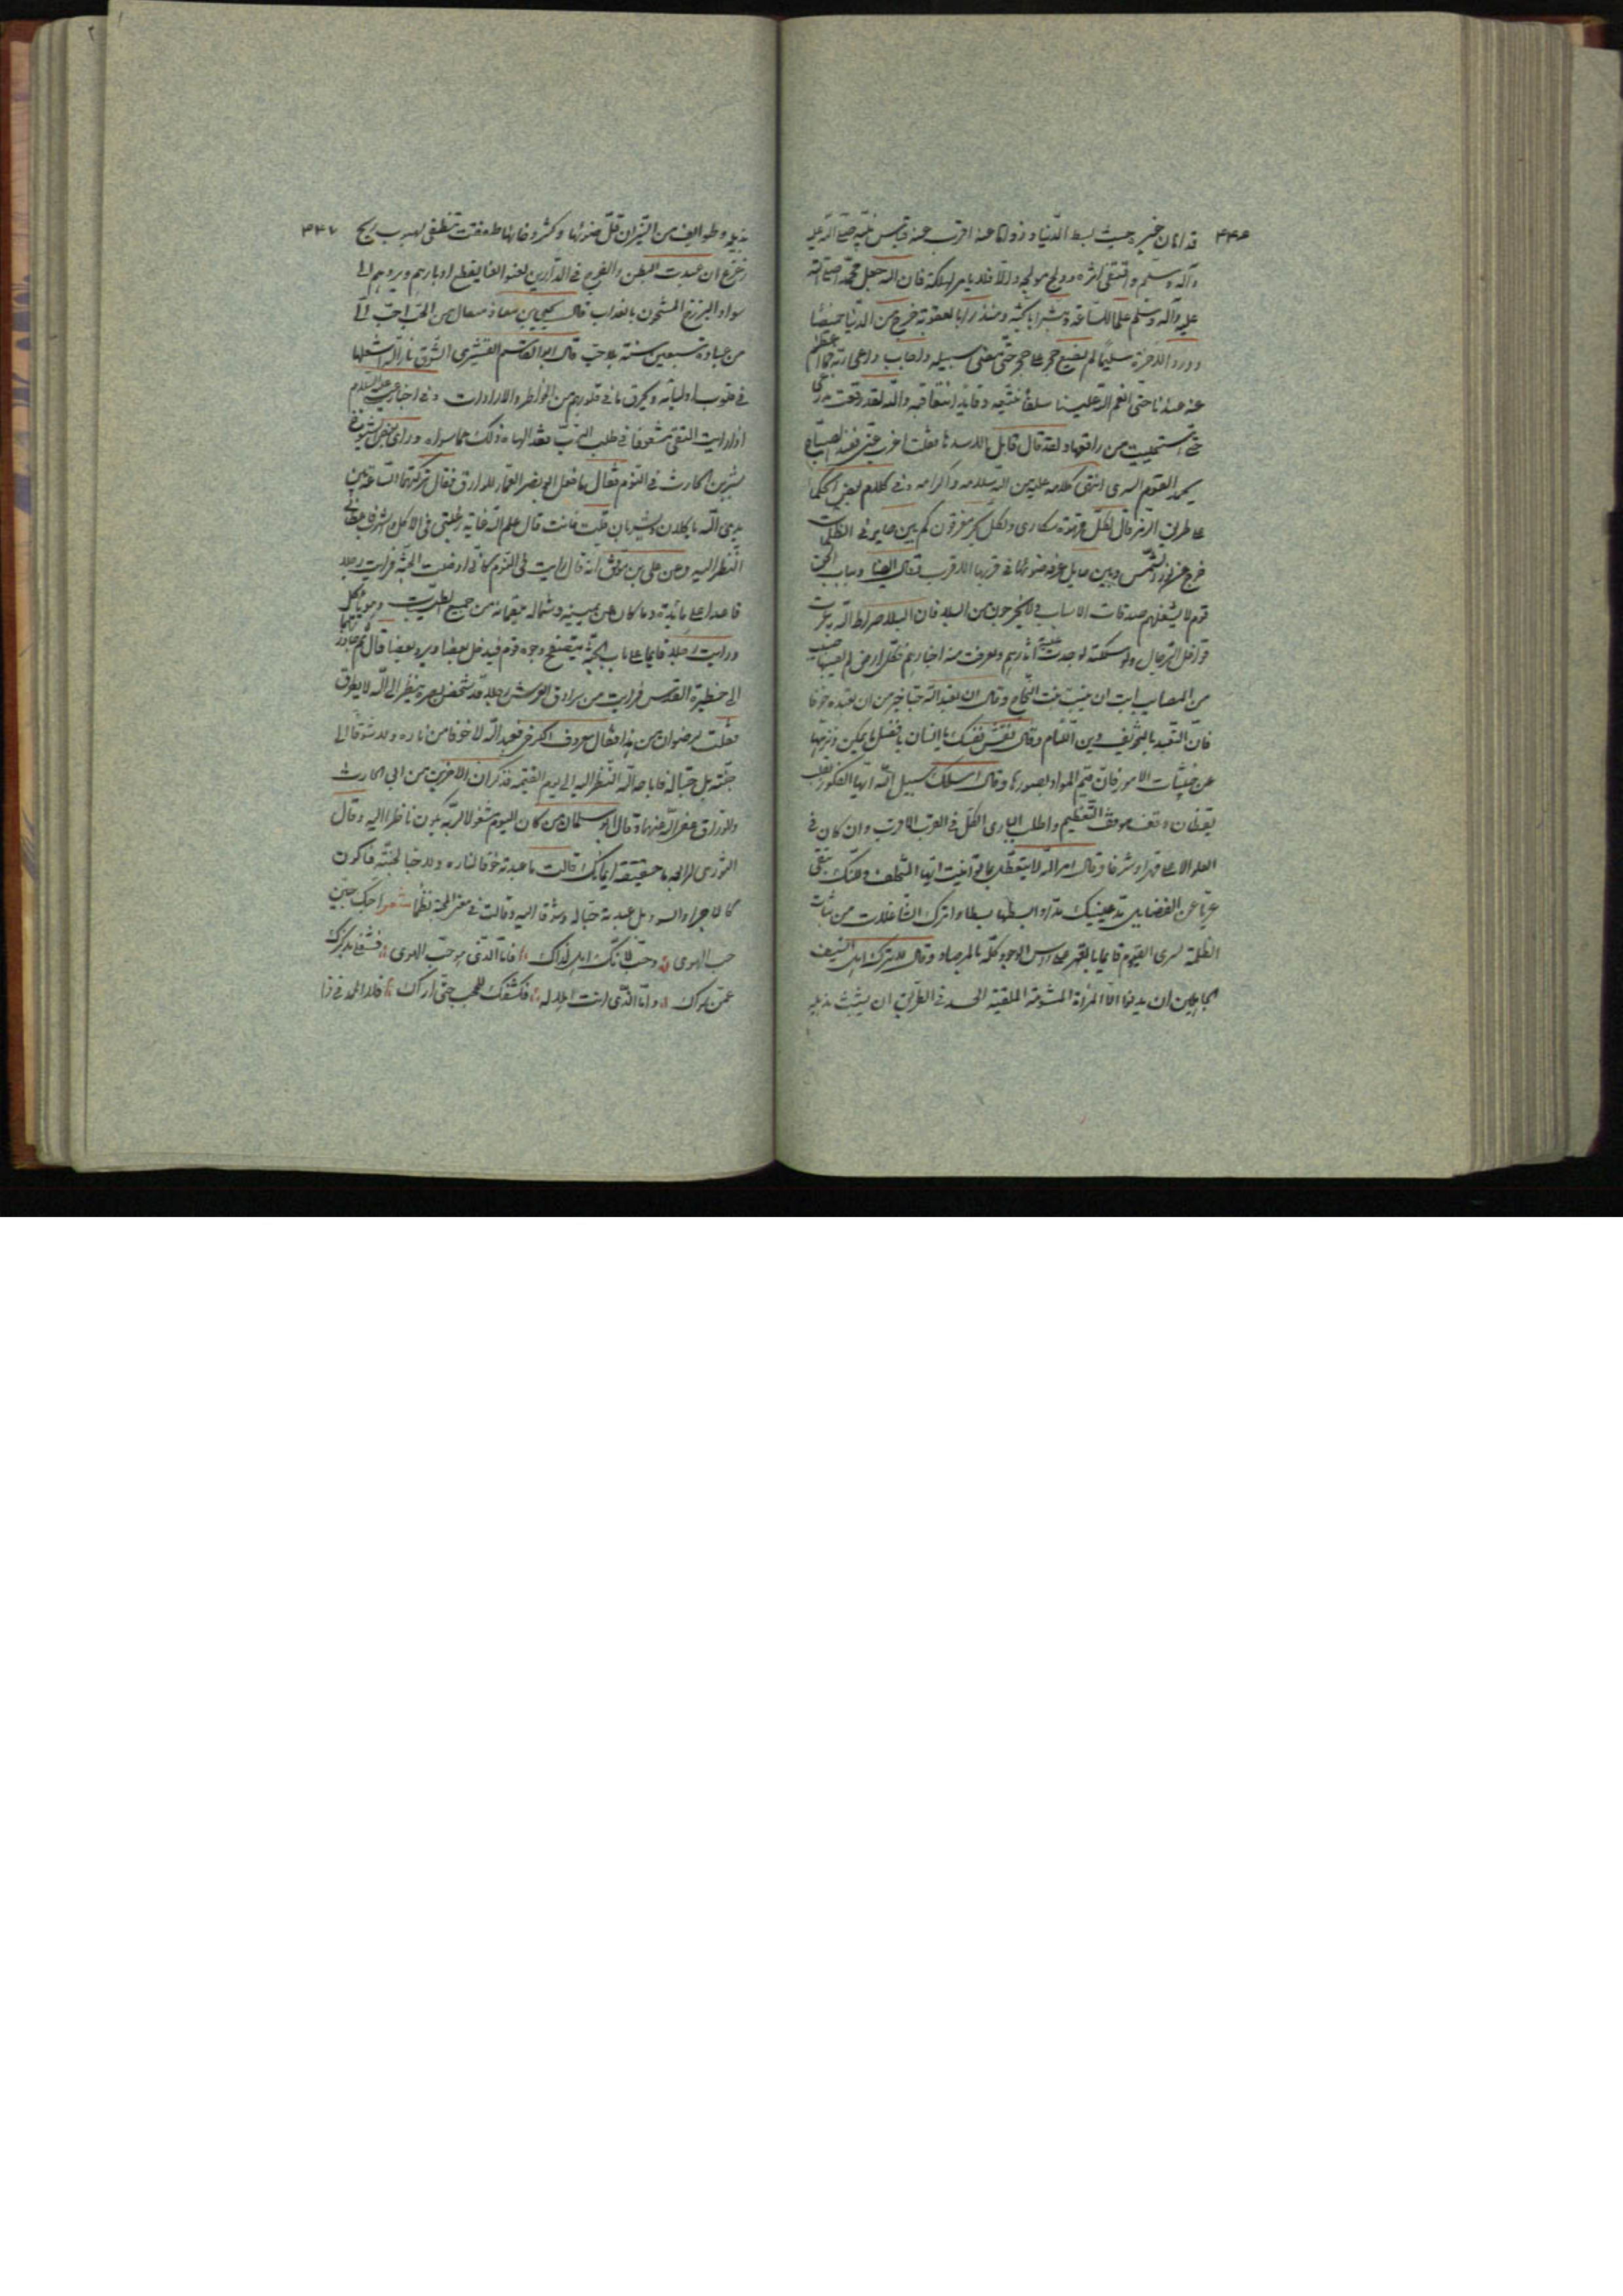 ۴۴۶
قدامان خبير حيث بسط الدنيا و زواها عنه اقرب عنه قياس نبيه صلى الله عليه
وآله وسلم واقتفى اثره وولج مولجه والا فلا يامن الهلكة فان الله جعل محمدا صلى الله
عليه وآله وسلم علما للساعة ومبشرا بالجنة ومنذرا بالعقوبة خرج من الدنيا خميصا
وورد الآخرة سليما لم يضع حجرا على حجر حتى مضى سبيله واجاب داعى ربه فما اعظم
منة عندنا حتى انعم الله علينا سلفا نتبعه وقايدا نقتفى والله لقد رقعت مدرعتى
حتى استحييت من راقعها ولقد قال قايل الا تنبذها فقلت اغرب عنى فعند الصباح
يحمد القوم السرى انتهى كلامه عليه من الله سلامه واكرامه وفى كلام بعض الحكما
على طريق الرمز قال لكل قهوة سكارى ولكل بحر مغرقون كم بين حاير فى الظلمات
خرج عن نور الشمس وبين حايل غرقه ضوئها فى قربها الاقرب قال ايضا
قوم لا يشغلهم صدقات الاسباب لا يخرجون من البلد فان البلا صراط الله يعرف
قوافل الرجال ولو سكنته لوجدت فيه آثارهم وعرفت منه اخبارهم فكل ارض لم يصبها صيب
من المصايب ابت ان ينبت نبت النجاح وقال ان تعبد الله حبا خير من ان تعبده خوفا
فان التعبد بالتخويف دين اللئام وقال نفس نفسك يا انسان بافضل ما يمكن ونزهها
عن خبيثات الامور فان قيم المواد بصورها وقال اسلك سبيل الله ايها الفكور بقلب
يقظان وقف موقف التعظيم واطلب البارى الكل فى القرب الاقرب وان كان فى
العلو الاعلى قهرا وشرفا وقال امر الله لا يتعطل
عن الفضايل مد عينيك مدا وابسطها بسطا واترك الشاغلات من بنات
الظلمة لترى القيوم قايما بالقهر على راس الوجود كله بالمرصاد وقال
الجاهلين ان يدنوا اما المراة المشومة الملقية الجسد فى الطريق ان يتشبث بذيله
۴۴۷
بذيله وطوايف من النيران قل ضوئها وكثر دخانها طفقت تنطفى بهبوب ريح
زعزع ان عبدت البطن والفرج فى الدارين لعنوا لعنا يقطع ادبارهم ويردهم الى
سواد البرزخ المشحون بالعذاب قال يحيى بن معاذ مثقال من الحب احب الى
من عبادة سبعين سنة بلا حب قال ابو القاسم القشيرى الشوق نار الله اشعلها
فى قلوب اوليائه ويحرق ما فى قلوبهم من الخواطر والارادات وفى اخبار عيسى عليه السلام
اذا رايت التقى مشعوفا فى طلب الرب فقد الهاه ذلك عما سواه وراى بعض الشيوخ
بشر بن الحارث فى النوم فقال ما فعل ابو نصر التمار والوراق فقال تركتهما الساعة بين
يدى الله ياكلان ويشربان قلت فانت قال علم الله قلة رغبتى فى الاكل والشرب فاعطانى
النظر اليه وعن على بن موفق انه قال رايت فى النوم كانى ادخلت الجنة فرايت رجلا
قاعدا على مائدة وملكان عن يمينه وشماله يلقمانه من جميع الطيبات وهو ياكل
ورايت رجلا قايما على باب الجنة يتصفح وجوه قوم فيدخل بعضا ويرد بعضا قال ثم جاوزتهما
الى حظيرة القدس فرايت من سرادق العرش رجلا قد شخص بصره ينظر الى الله لا يطرق
فقلت لرضوان من هذا فقال معروف الكرخى عبد الله لا خوفا من ناره ولا شوقا الى
جنته بل حبا له فاباحه الله النظر اليه الى يوم القيمة فذكر ان الآخرين من ابى الحارث
والوراق غفر الله عنهما وقال ابو سليمان من كان اليوم مشغولا بربه يكون ناظرا اليه وقال
الثورى لرابعة ما حقيقة ايمانك قالت ما عبدته خوفا لناره ولا حبا لجنته فاكون
كالاجير السوء بل عبدته حبا له وشوقا اليه وقالت فى معنى المحبة نظما شعر احبك حبين
حب الهوى وحب لانك اهل لذاك فاما الذى هو حب الهوى فشغلى بذكرك
عمن سواك واما الذى انت اهل له فكشفك للحجب حتى اراك فلا الحمد فى ذا